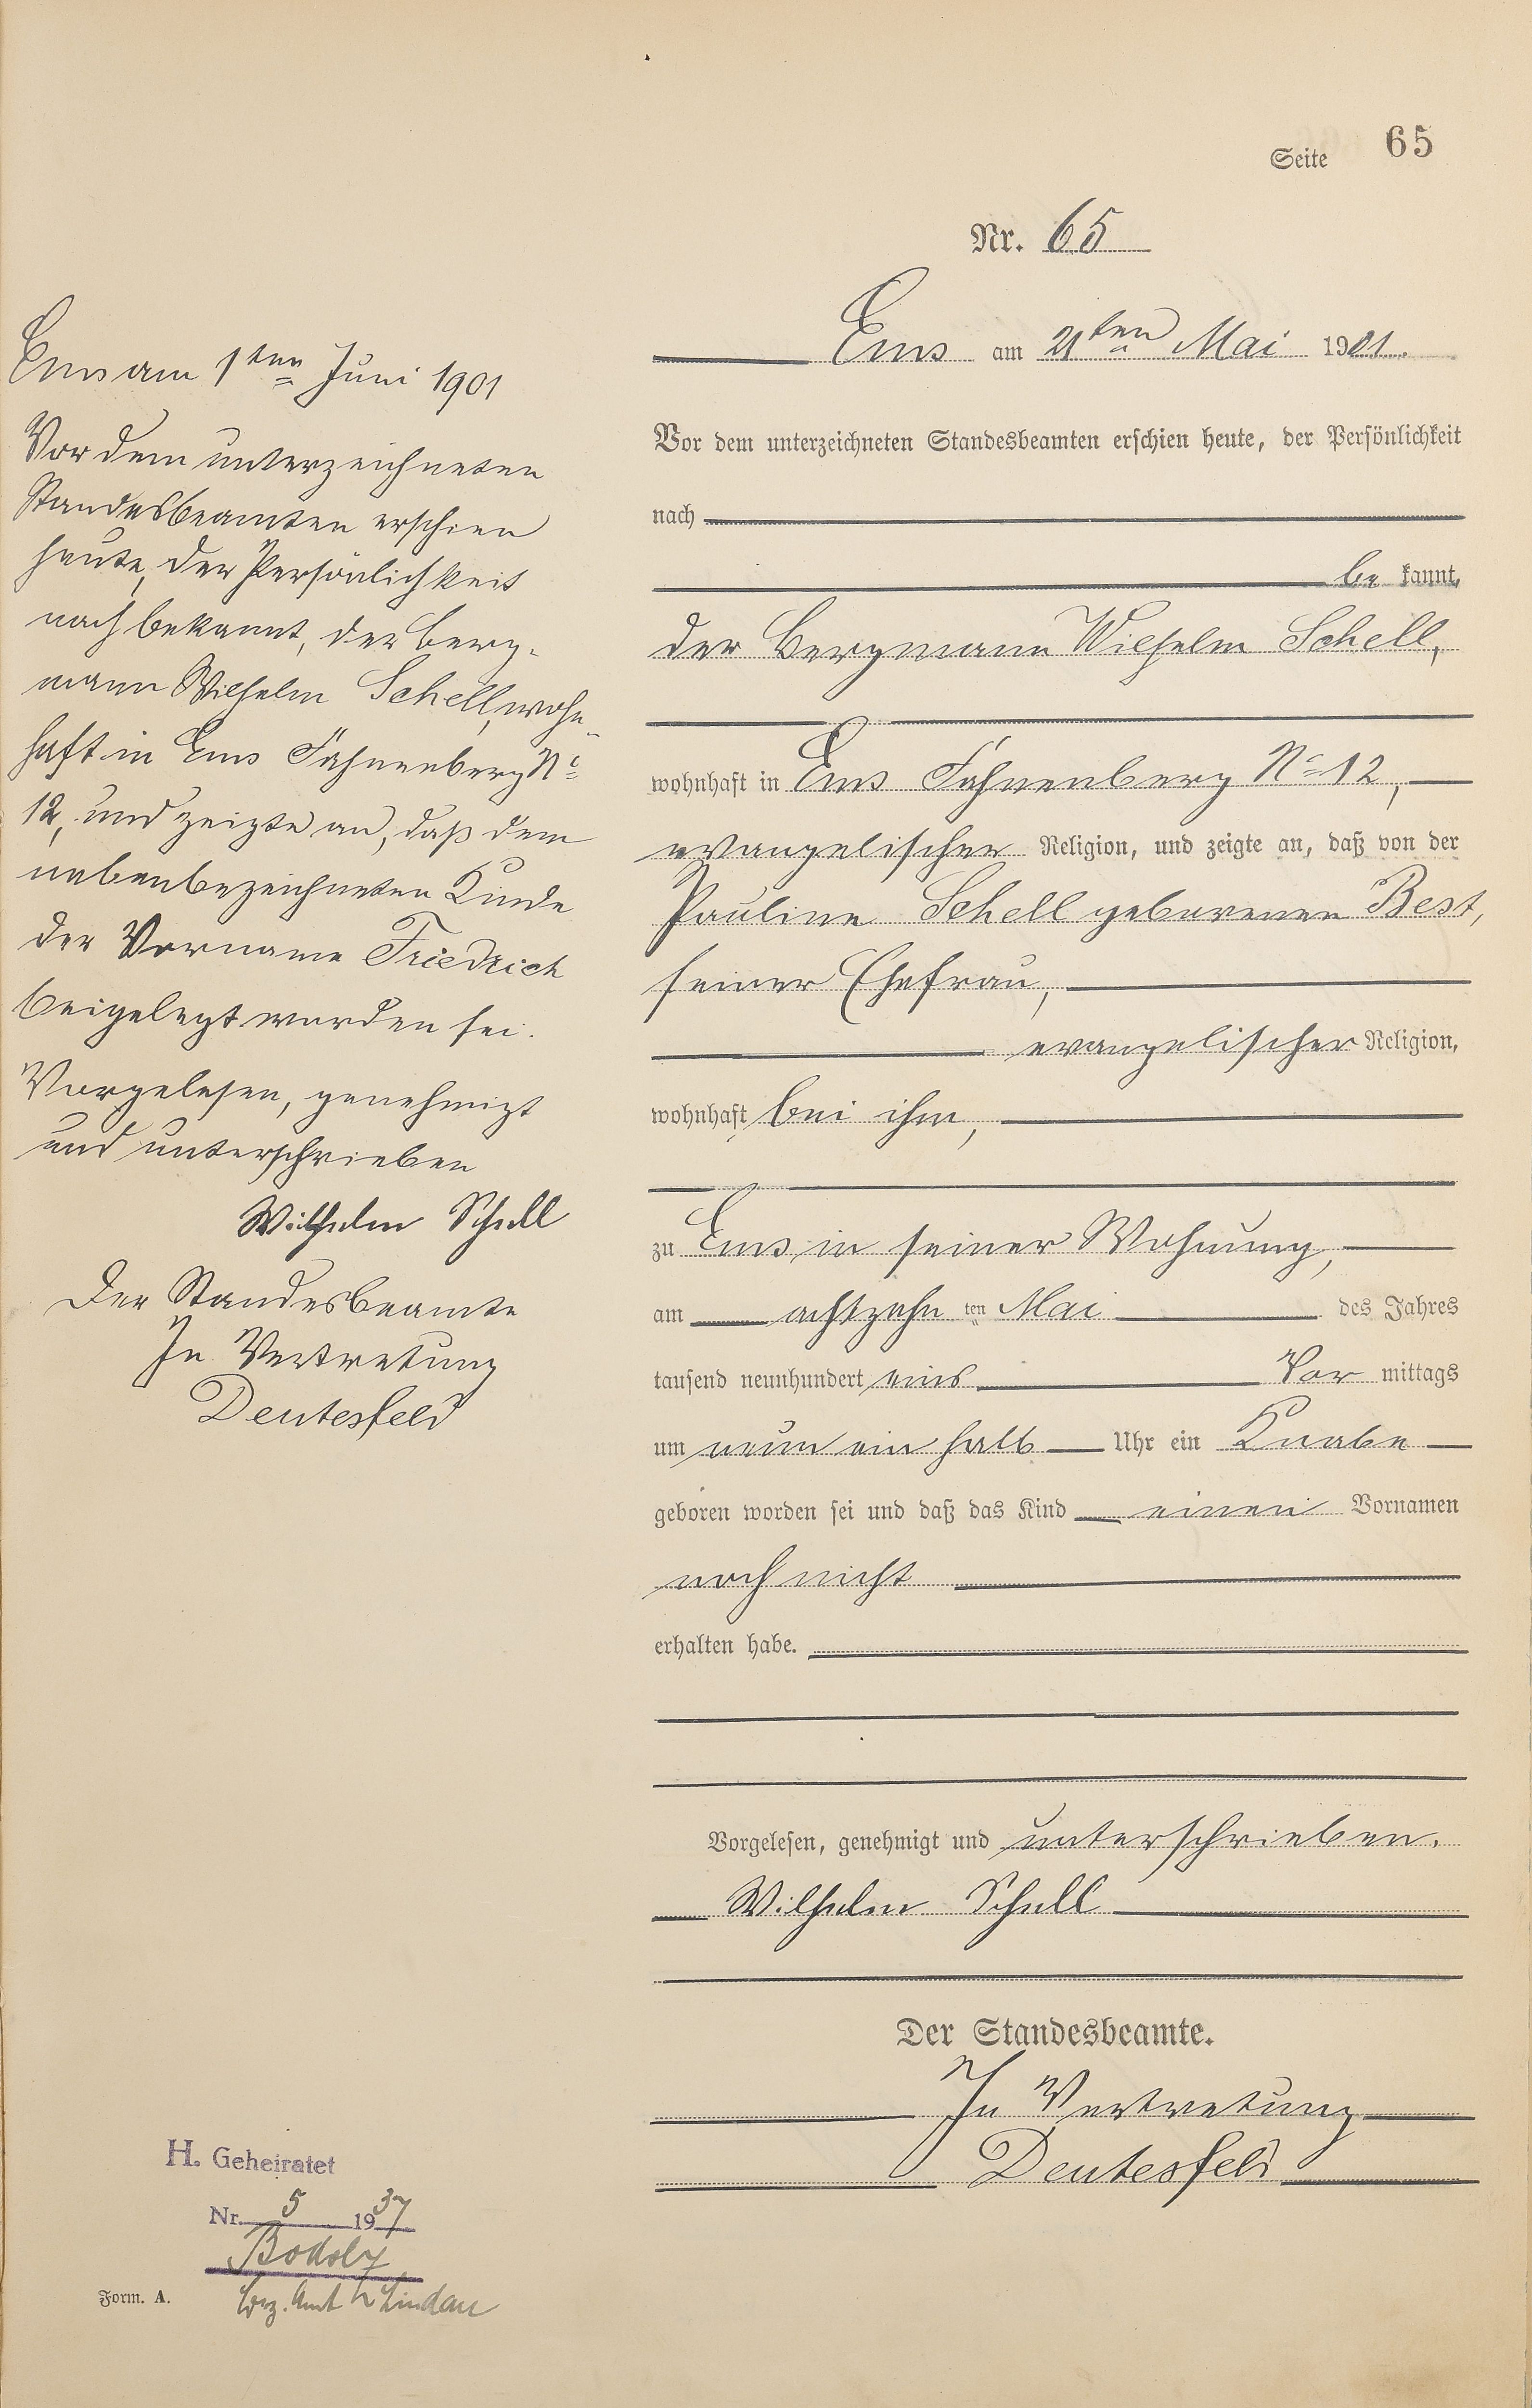 Seite 65
Nr. 65
Ems am 21ten Mai 1901.
Vor dem unterzeichneten Standesbeamten erschien heute, der Persönlichkeit
nach
be kannt,
der Bergmann Wilhelm Schell,
wohnhaft in Ems Fahnenberg No 12,
evangelischer Religion, und zeigte an, daß von der
Pauline Schell geborenen Best,
seiner Ehefrau,
evangelischer Religion,
wohnhaft bei ihm,
zu Ems in seiner Wohnung,
am achtzehn ten Mai des Jahres
tausend neunhundert eins Vor mittags
um neun ein halb Uhr ein Knabe
geboren worden sei und daß das Kind einen Vornamen
noch nicht
erhalten habe.
Vorgelesen, genehmigt und unterschrieben.
Wilhelm Schell
Der Standesbeamte.
In Vertretung
Deutesfeld
Ems am 1ten Juni 1901
Vor dem unterzeichneten
Standesbeamten erschien
heute, der Persönlichkeit
nach bekannt, der Berg-
mann Wilhelm Schell, wohn-
haft in Ems Fahnenberg No
12, und zeigte an, daß dem
nebenbezeichneten Kinde
der Vorname Friedrich
beigelegt worden sei.
Vorgelesen, genehmigt
und unterschrieben
Wilhelm Schell
Der Standesbeamte
In Vertretung
Deutesfeld
H. Geheiratet
Nr. 5 1937
Lindau
Form. A.